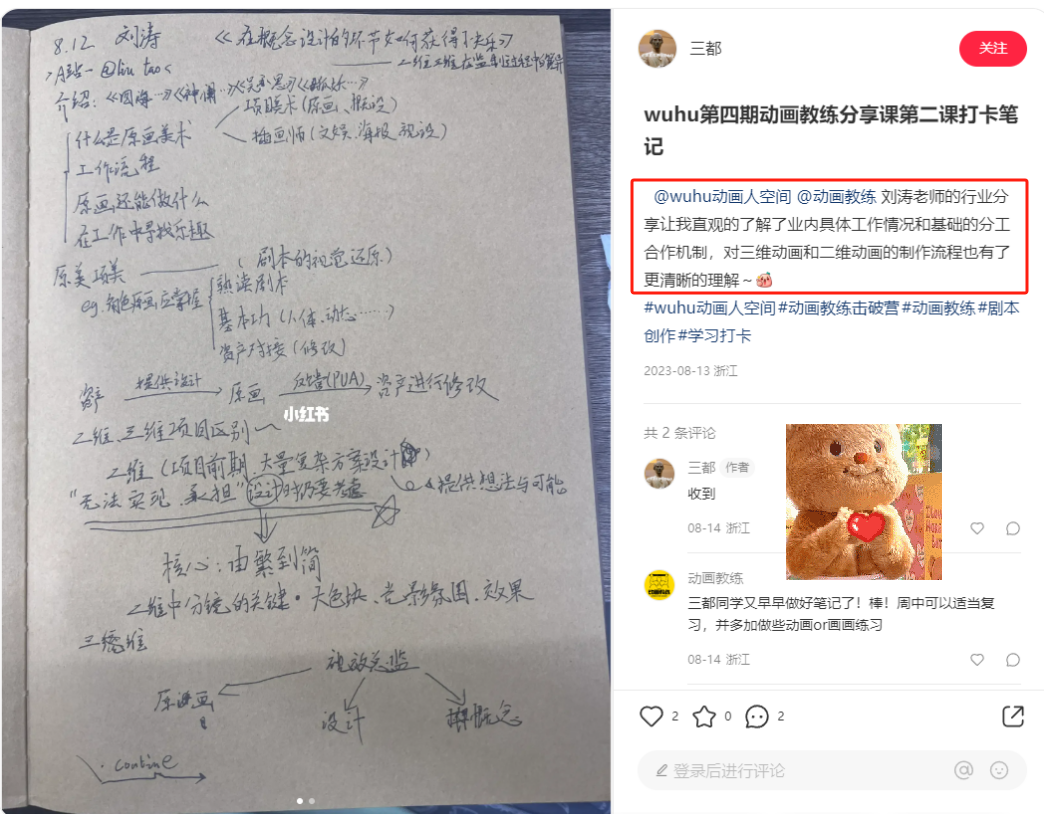 8.12 刘涛 《在概念设计的环节如何获得快乐》
A站- @liu tao
介绍:
项目美术(原画、概设)
插画师(文娱.海报.视设)
什么是原画美术
工作流程
原画还能做什么
在工作中寻找乐趣
原美项美 —— (剧本的视觉还原)
eg.角色原画应掌握
熟读剧本
基本功(人体.动态……)
资产对接(修改)
提供设计 原画 反馈(PUA) 资产进行修改
小红书
二维、三维项目区别
二维(项目前期 大量复杂方案设计)
"无法实现,承担"设计时仍要考虑
提供想法与可能
核心:由繁到简
二维中分镜的关键·大色块、光影氛围、效果
三维
视效总监
原画
设计
概念
三都
关注
wuhu第四期动画教练分享课第二课打卡笔
记
@wuhu动画人空间 @动画教练 刘涛老师的行业分
享让我直观的了解了业内具体工作情况和基础的分工
合作机制，对三维动画和二维动画的制作流程也有了
更清晰的理解～
#wuhu动画人空间#动画教练击破营#动画教练#剧本
创作#学习打卡
2023-08-13 浙江
共 2 条评论
三都 作者
收到
08-14 浙江
动画教练
三都同学又早早做好笔记了！棒！周中可以适当复
习，并多加做些动画or画画练习
08-14 浙江
2 0 2
登录后进行评论